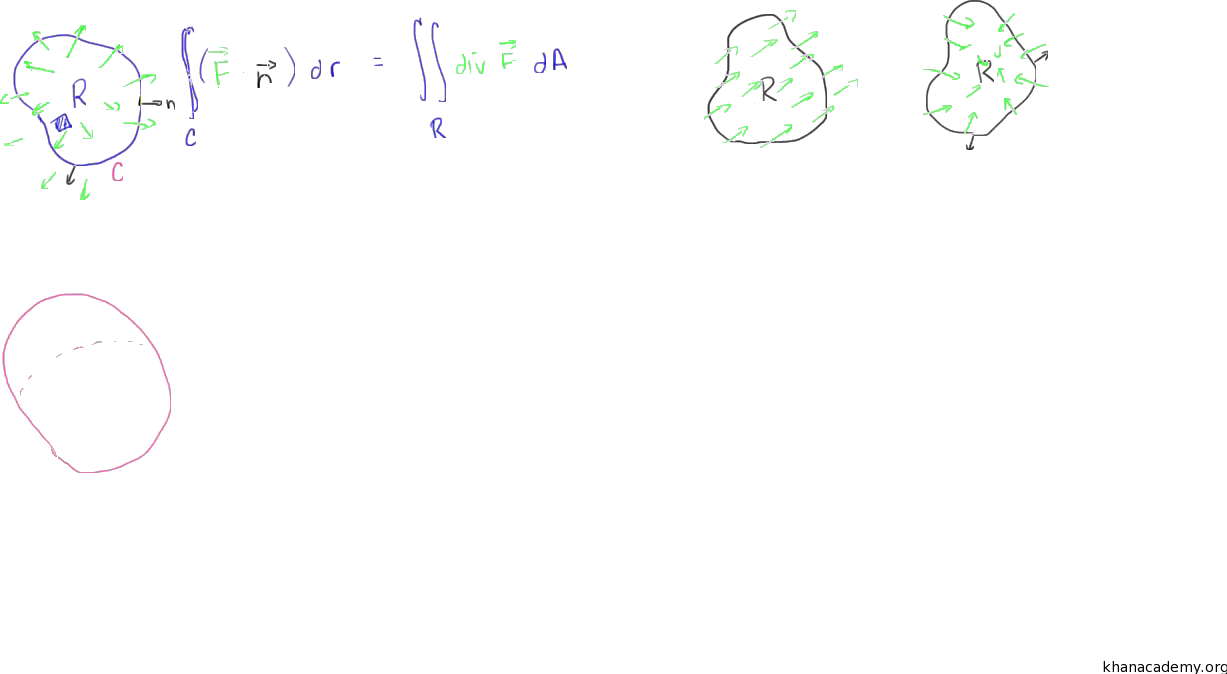 R
n
C
∫ (F⃗ · n⃗) dr = ∬ div F⃗ dA
C
R
R
R
khanacademy.org